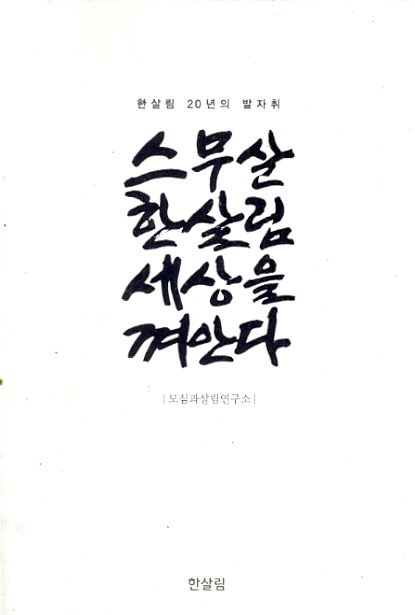 한살림 20년의 발자취
스무살
한살림
세상을
껴안다
|모심과살림연구소|
한살림